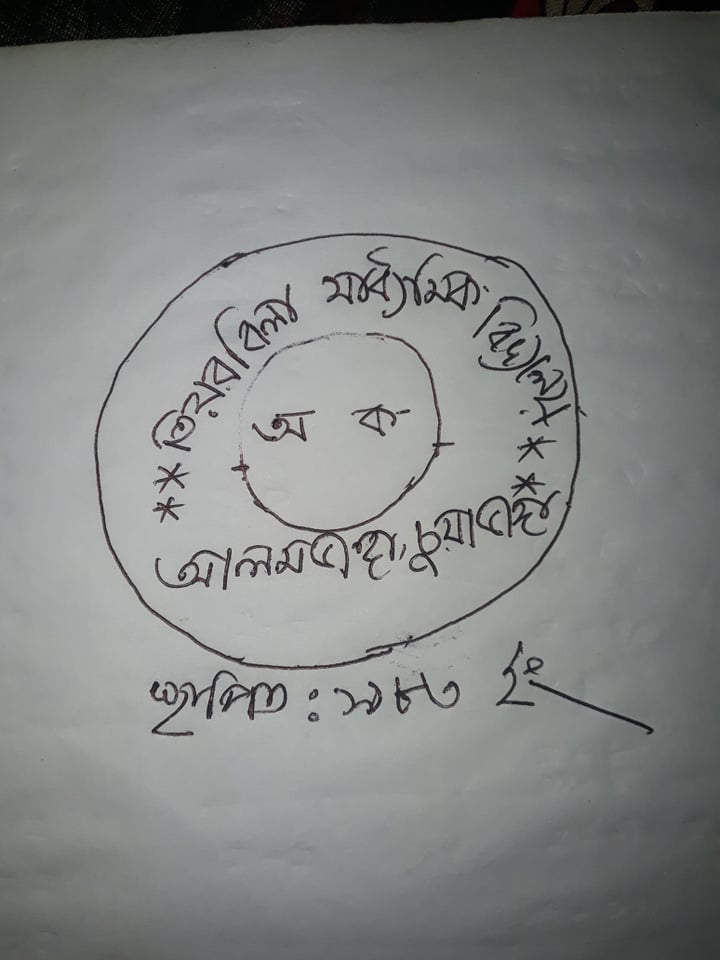 **তিয়রবিলা মাধ্যমিক বিদ্যালয়**
অ ক
আলমডাঙ্গা, চুয়াডাঙ্গা
স্থাপিত : ১৯৮৩ ইং